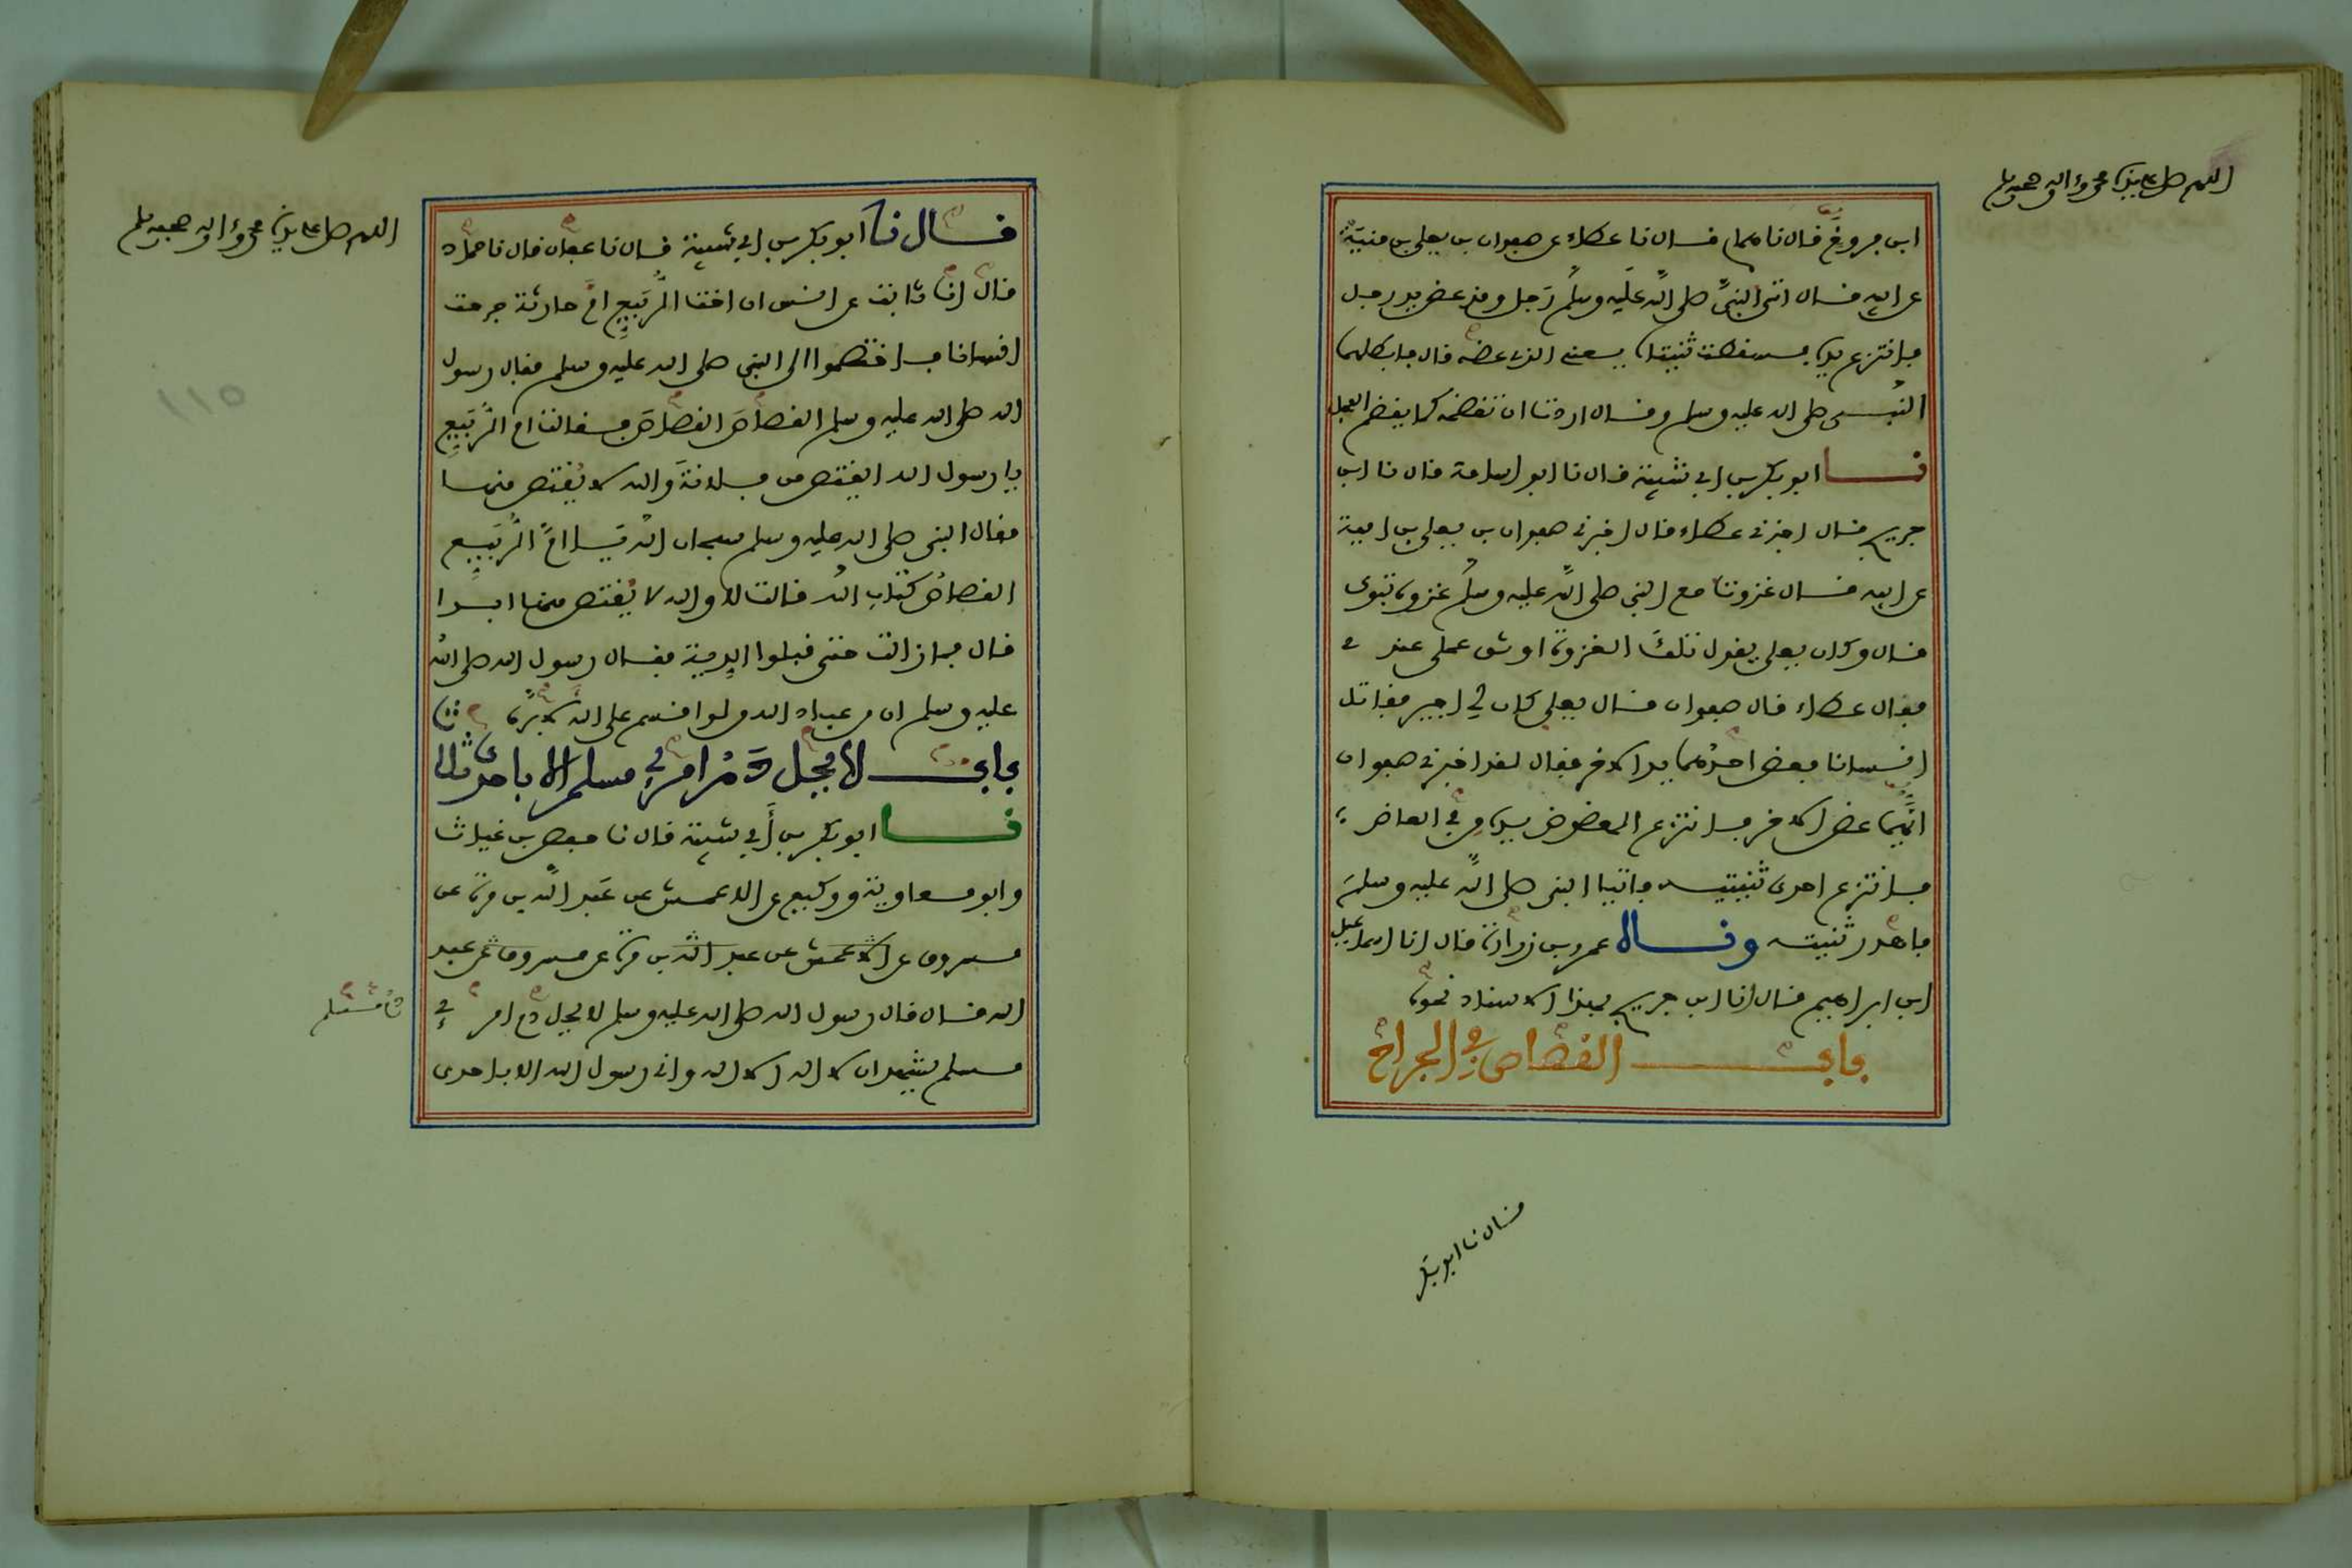 اللهم صل على سيدنا محمد وءاله وصحبه وسلم
ابن فروخ قال نا همام قال نا عطاء عن صفوان بن يعلى بن منية
عن ابيه قال اتى النبيَّ صلى الله عليه وسلم رَجل وقد عض يد رجل
فانتزع يده فسقطت ثنيتاه يعنى الذى عضه قال فابطلها
النبى صلى الله عليه وسلم وقال اردت ان تقضمه كما يقضم الفحل
نا ابو بكر بن ابي شيبة قال نا ابو اسامة قال نا ابن
جريج قال اخبرنى عطاء قال اخبرنى صفوان بن يعلى بن امية
عن ابيه قال غزوت مع النبي صلى الله عليه وسلم غزوة تبوك
قال وكان يعلى يقول تلكَ الغزوة اوثق عملى عندى
فقال عطاء قال صفوان قال يعلى كان لي اجير فقاتل
انسانا فعض احدُهما يد الاخر فقال لقد اخبرنى صفوان
ايّهما عض الاخر فانتزع المعضوض يده من في العاض
فانتزع احدى ثنيتيه فاتيا النبى صلى الله عليه وسلمَ
فاهدر ثنيته وقال عمرو بن زرارة قال انا اسماعيل
ابن ابراهيم قال انا ابن جريج بهذا الاسناد نحوه
باب القصاص في الجراح
قال نا ابو بكر
اللهم صل على سيدنا محمد وءاله وصحبه وسلم
قال نا ابو بكر بن ابي شيبة قال نا عفان قال نا حماد
قال انا ثابت عن انس ان اخت الرُّبَيِّعِ امَّ حارثة جرحت
انسانا فاختصموا الى النبي صلى الله عليه وسلم فقال رسول
الله صلى الله عليه وسلم القصاصَ القصاصَ فقالت ام الرَّبيع
يا رسول الله ايقتص من فلانةَ والله لا يُقتص منها
فقال النبى صلى الله عليه وسلم سبحان الله يا امَّ الرَّبيع
القصاصُ كتاب الله قالت لا والله لا يُقتص منها ابدا
قال فما زالت حتى قبلوا الدية فقال رسول الله صلى الله
عليه وسلم ان من عباد الله من لو اقسم على الله لابرَّه
باب لا يحل دَمُ امرئ مسلم الا باحدى ثلاث
نا ابو بكر بن أبي شيبة قال نا حفص بن غياث
وابو معاوية ووكيع عن الاعمش عن عَبد الله بن مرة عن
مسروق عن الاعمش عن عبد الله بن مرة عن مسروق عن عبد
الله قال قال رسول الله صلى الله عليه وسلم لا يحل دم امرئ
مسلم يشهد ان لا اله الا الله وانى رسول الله الا باحدى
١١٥